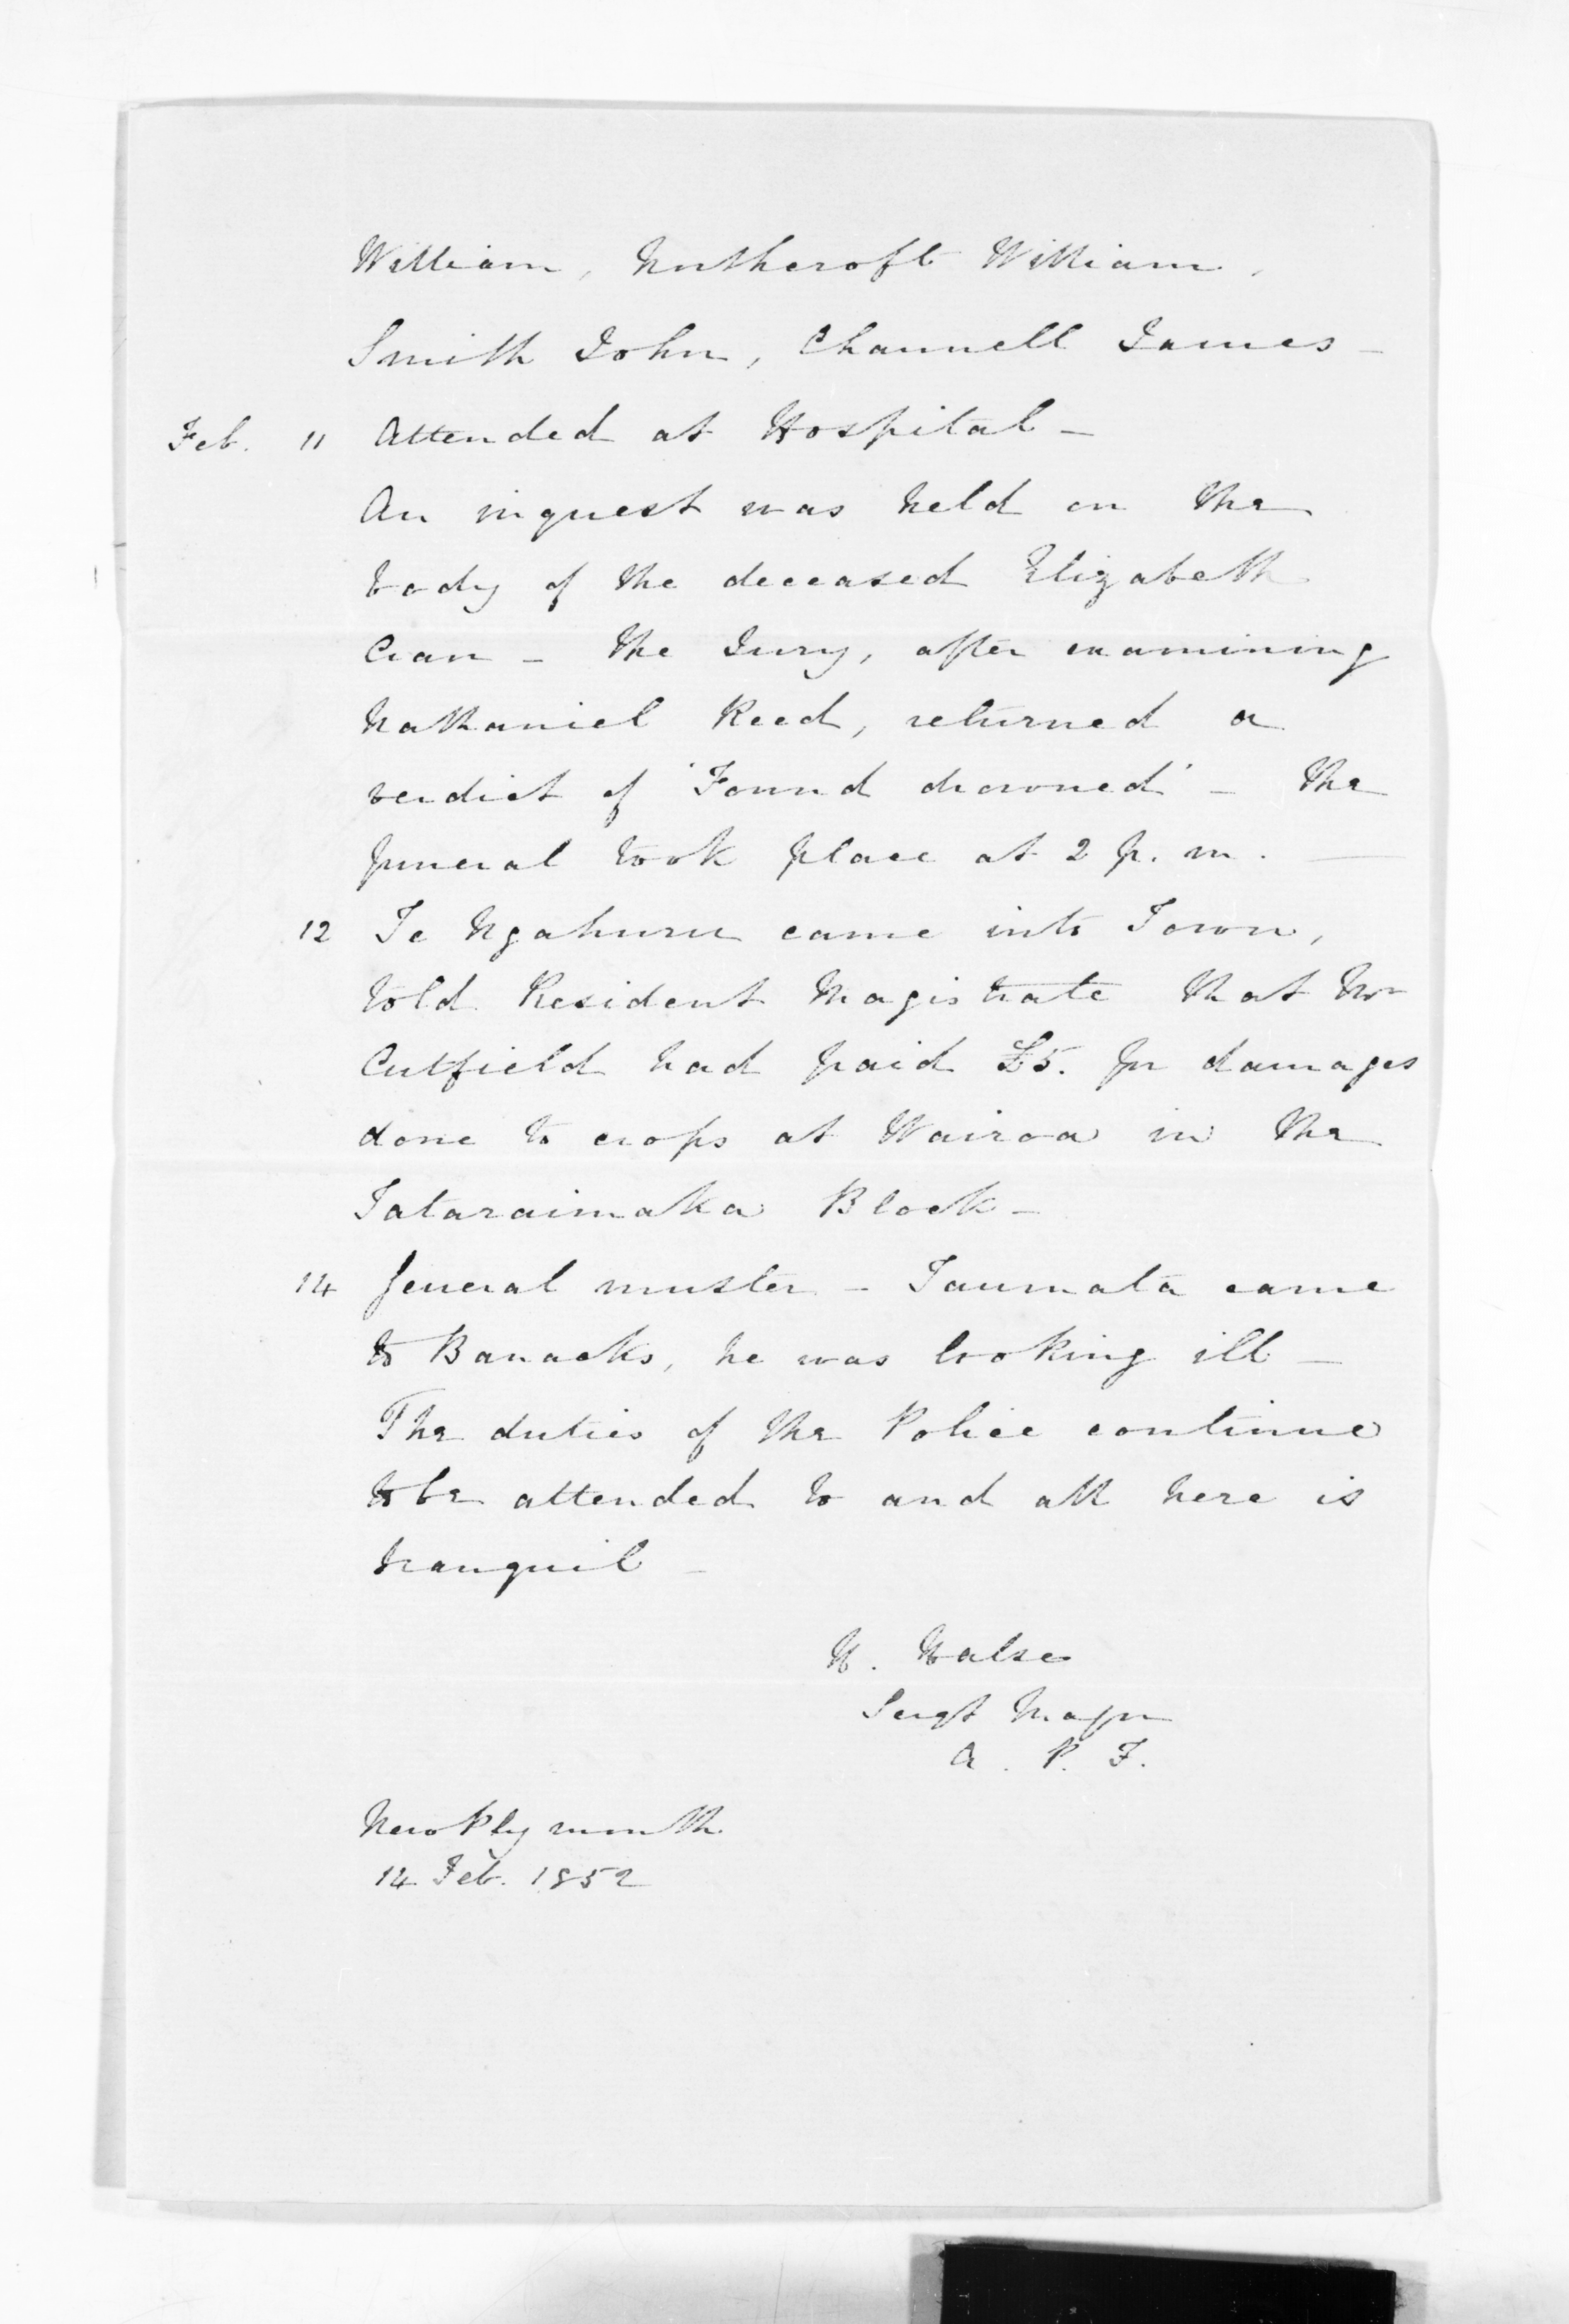 William, Northcroft William,
Smith John, Channell James -
Feb. 11 Attended at Hospital -
An inquest was held on the
body of the deceased Elizabeth
- The Jury, after examining
Nathaniel Reed, returned a
verdict of 'Found drowned' - The
funeral took place at 2 p.m. -
12 Te Ngahuru came into Town,
told Resident Magistrate that Mr
Cutfield had paid £5. for damages
done to crops at Wairoa in the
Tataraimaka Block -
14 General muster - Taumata came
to Barracks, he was looking ill -
The duties of the Police continue
to be attended to and all here is
tranquil -
H. Halse
Sergt Major
A. P. F.
New Plymouth
14 Feb. 1852